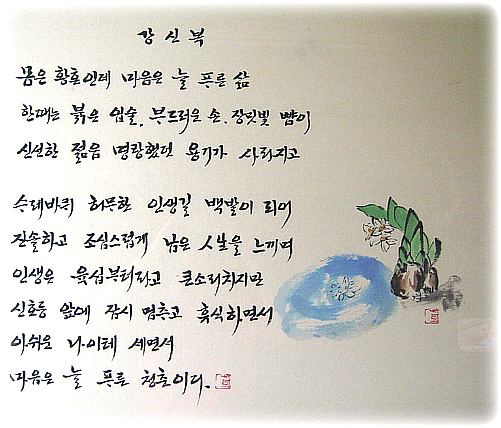 강신복
몸은 황혼인데 마음은 늘 푸른 삶
한때는 붉은 입술, 부드러운 손, 장밋빛 뺨이
신선한 젊음 명랑했던 용기가 사라지고
수레바퀴 허무한 인생길 백발이 되어
진솔하고 조심스럽게 남은 人生을 느끼며
인생은 육십부터라고 큰소리치지만
신호등 앞에 잠시 멈추고 휴식하면서
아쉬운 나이테 세면서
마음은 늘 푸른 청춘이다.